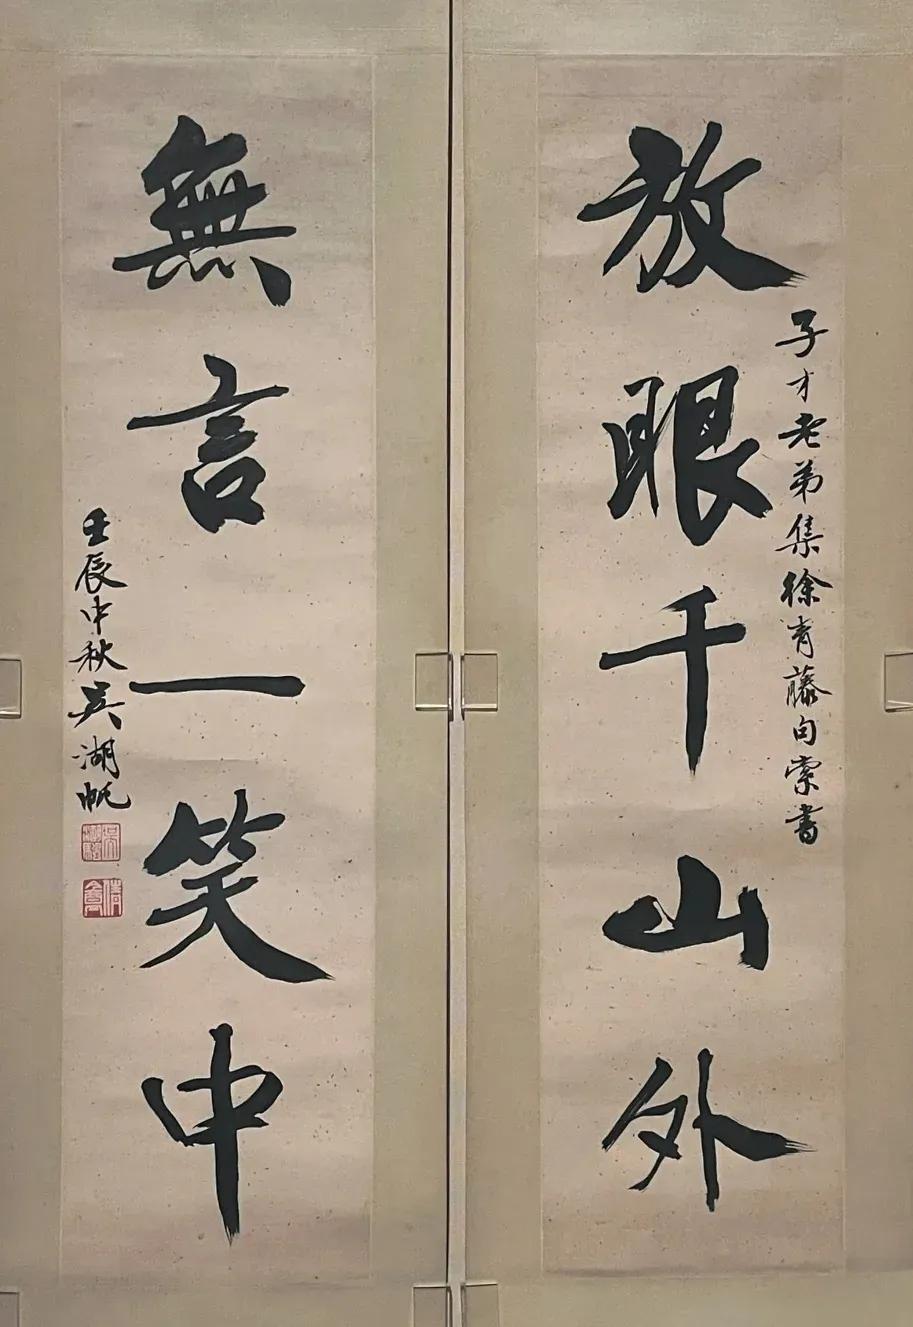 放眼千山外
子才老弟集徐青藤句索書
無言一笑中
壬辰中秋吳湖帆